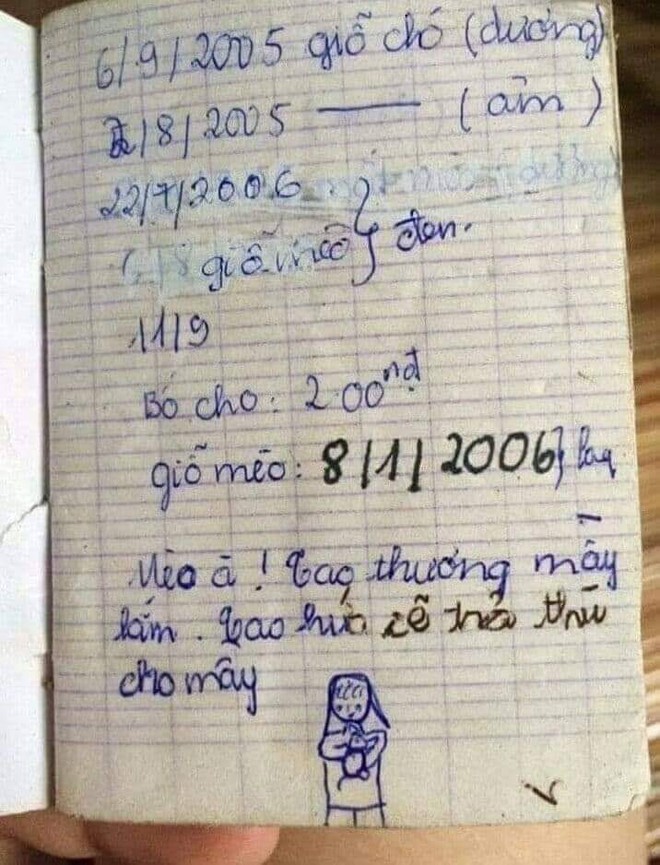 6/9/2005 giỗ chó (dương)
/8/2005 —— (âm)
22/7/2006
giỗ mèo } đen.
11/9
Bố cho: 200nđ
giỗ mèo: 8/1/2006}
Mèo à! Tao thương mầy
lắm. Tao hứa sẽ trả thù
cho mầy